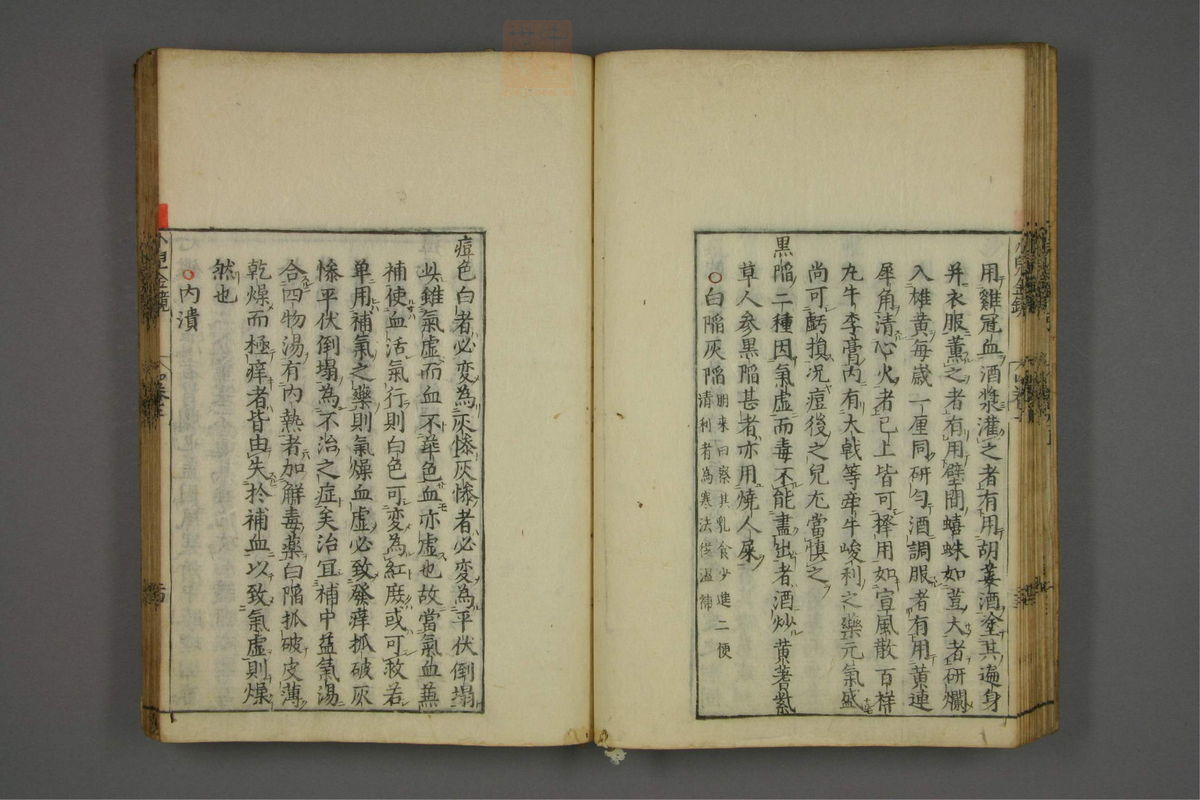 用雞冠血酒漿灌之者有用胡荽酒塗其遍身
并衣服薰之者有用壁間蟢蛛如荳大者研爛
入雄黄每歲一厘同研勻酒調服者有用黄連
犀角清心火者已上皆可擇用如宣風散百祥
丸牛李膏内有大戟等牽牛峻利之藥元氣盛
尚可虧損况痘後之兒尤當慎之
黒陥二種因氣虛而毒不能盡出者酒炒黄蓍紫
草人参黒陥甚者亦用燒人屎
○白陥灰陥
来曰察其乳食少進二便
清利者為寒法従温補
痘色白者必変為灰惨灰惨者必変為平伏倒塌
此雖氣虛而血不華色血亦虛也故當氣血兼
補使血活氣行則白色可変為紅庶或可救若
単用補氣之藥則氣燥血虛必致發痒抓破灰
惨平伏倒塌為不治之症矣治冝補中益氣湯
合四物湯有内熱者加觧毒藥白陥抓破皮薄
乾燥而極痒者皆由失於補血以致氣虛則燥
然也
○内潰
小兒金鏡